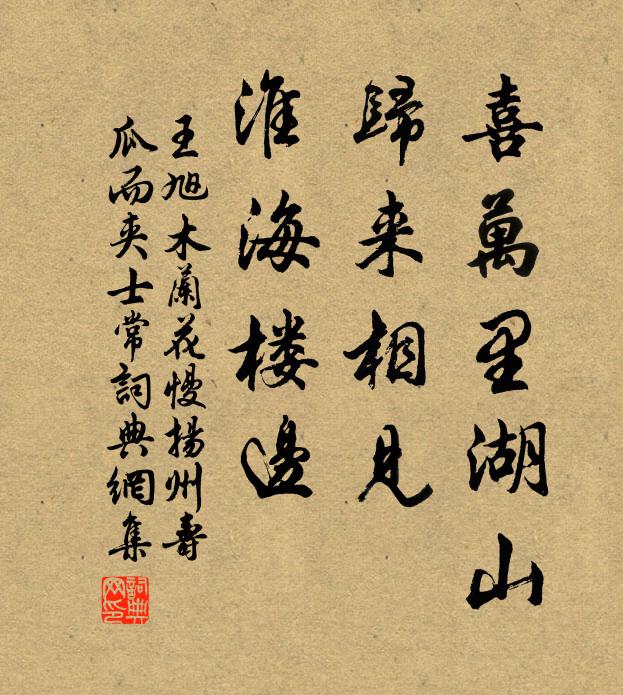 喜萬里湖山
歸来相見
淮海楼邊
王旭木蘭花慢揚州壽
瓜而夾士常詞典網集
詞典网印